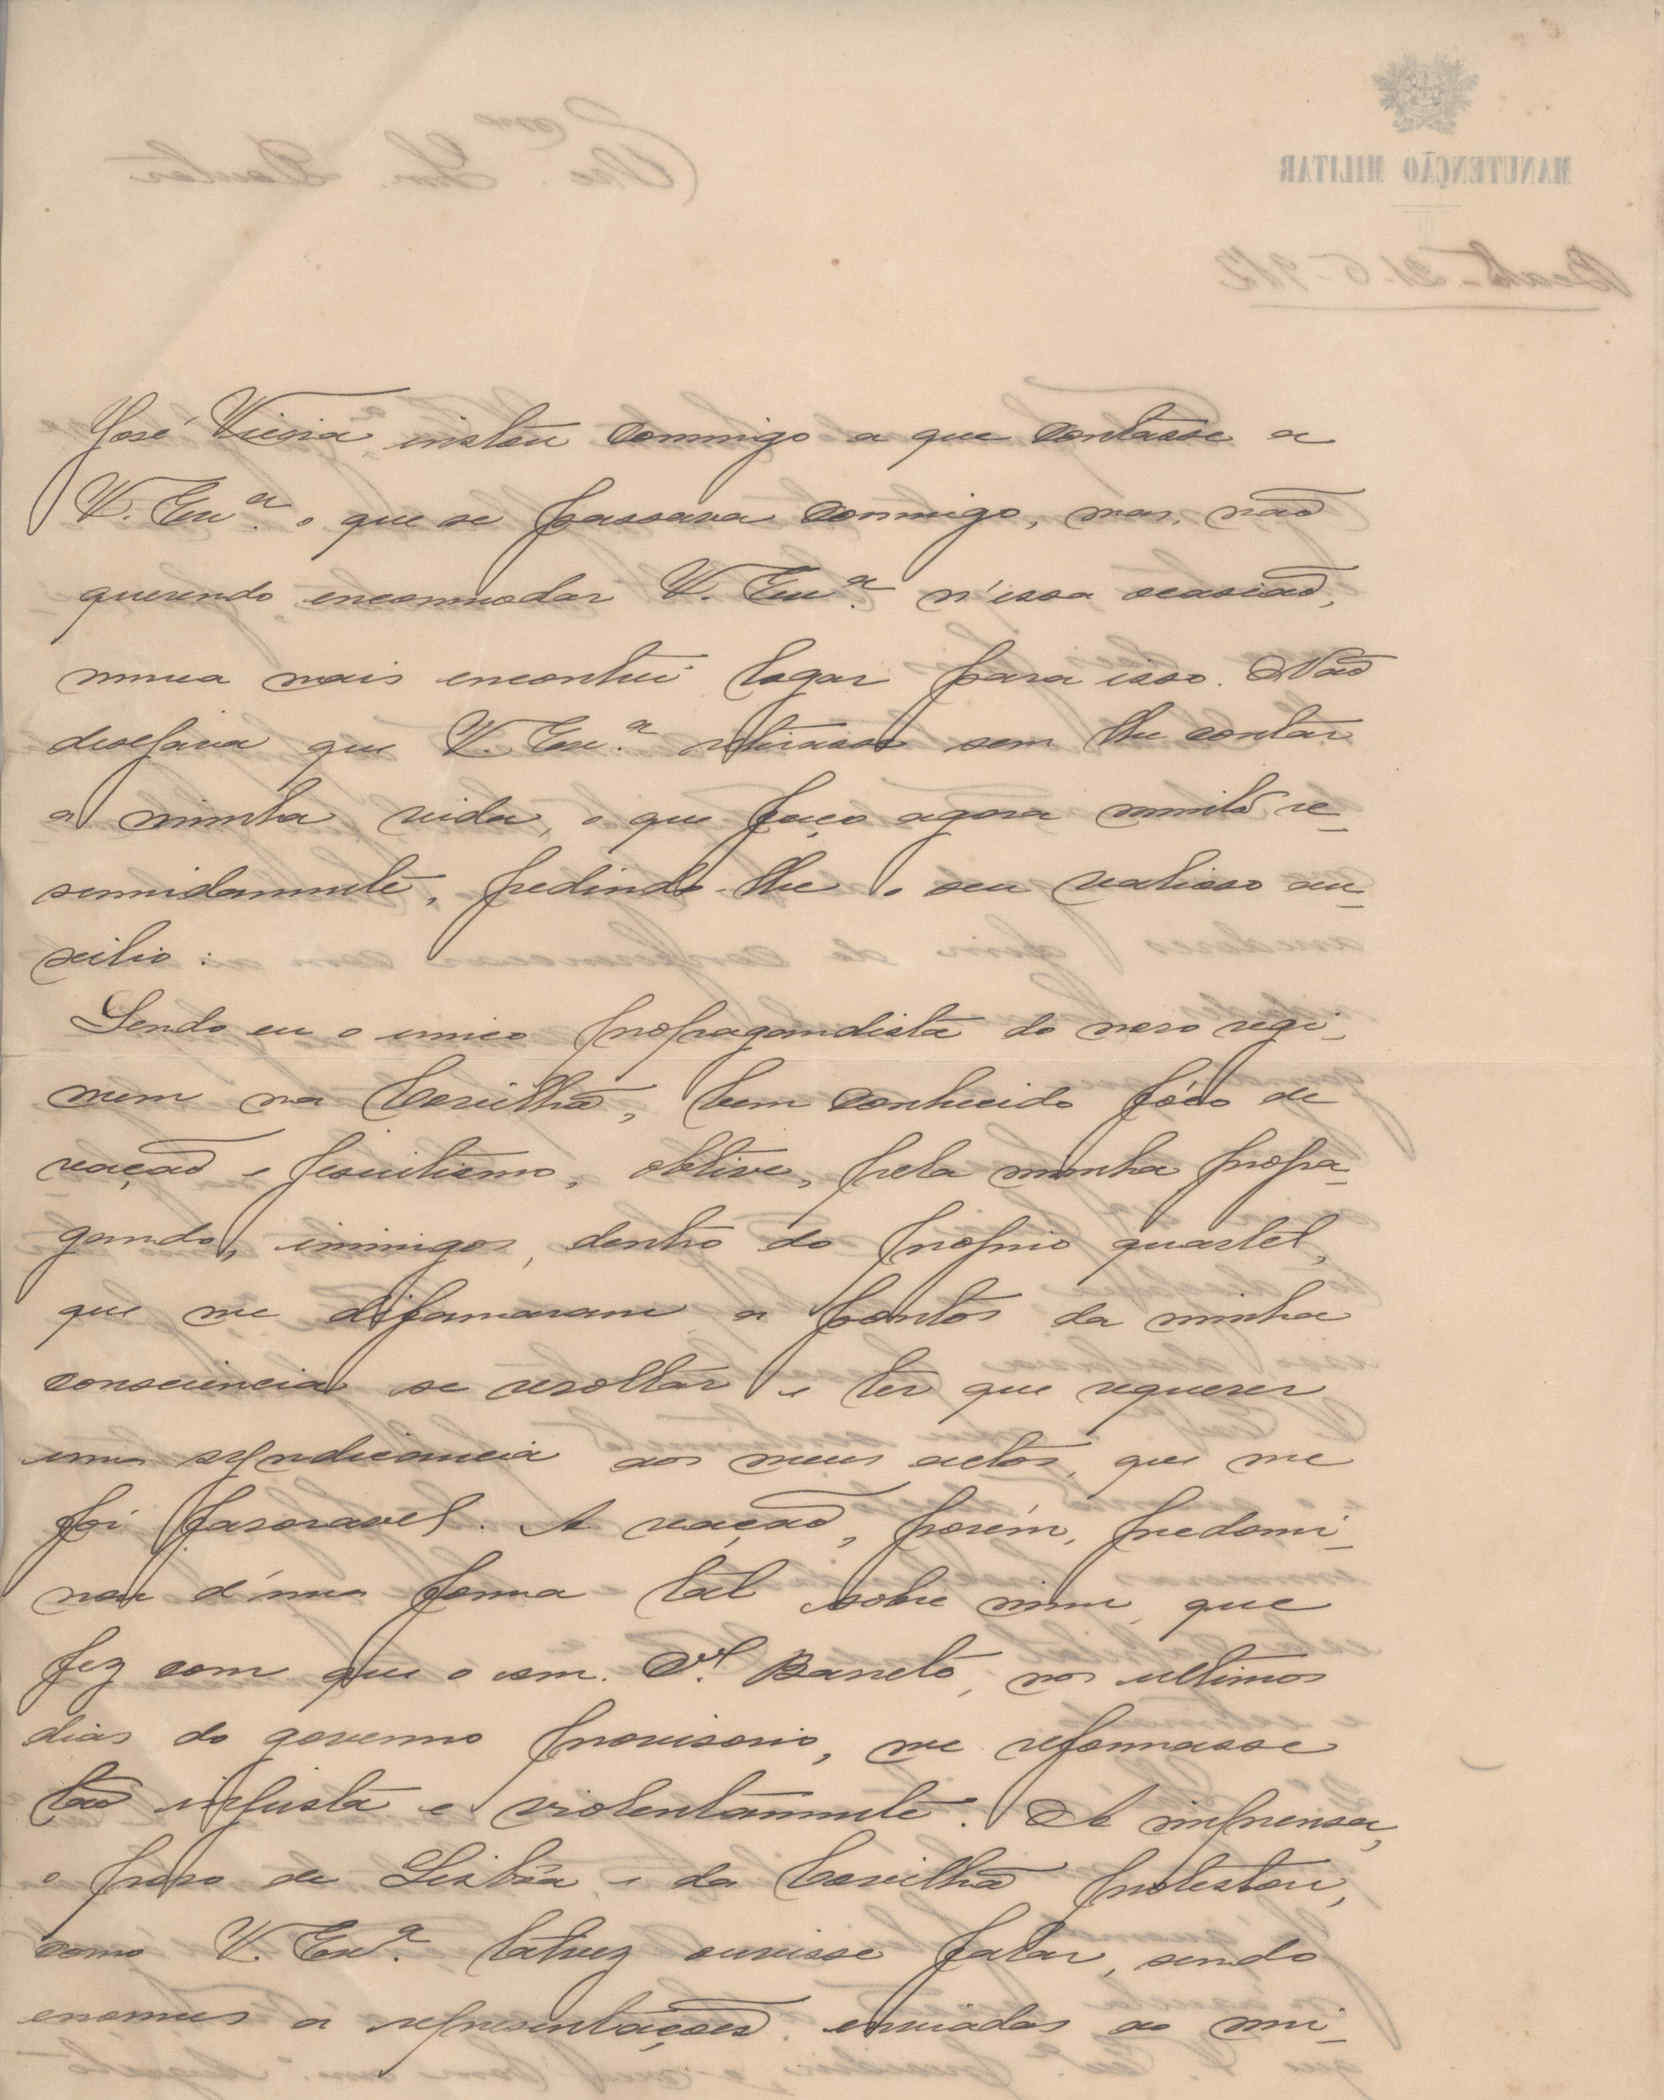 José Vieira, instou commigo a que contasse a
V. Exª. o que se passava commigo, mas, não
querendo encommodar V. Exª. n'essa occasião,
nunca mais encontrei logar para isso. Não
desejava que V. Exª. retirasse sem lhe contar
a minha vida, o que faço agora muito re-
sumidamente, pedindo-lhe o seu valioso au-
xilio:
Sendo eu o unico propagandista do novo regi-
mem na Covilhã, bem conhecido fóco de
reação e jesuitismo, obtive, pela minha propa-
ganda, inimigos, dentro do proprio quartel,
que me difamaram a pontos da minha
consciencia se revoltar e ter que requerer
uma syndicancia aos meus actos, que me
foi favoravel. A reação, porém, predomi-
nou d'uma forma tal sobre mim, que
fez com que o snr. Cel. Barreto, nos ultimos
dias do governo provisorio, me reformasse
tão injusta e violentamente. A imprensa,
o povo de Lisbôa e da Covilhã protestou,
como V. Exª. talvez ouvisse falar, sendo
enormes a representações enviadas ao mi-
MANUTENÇÃO MILITAR